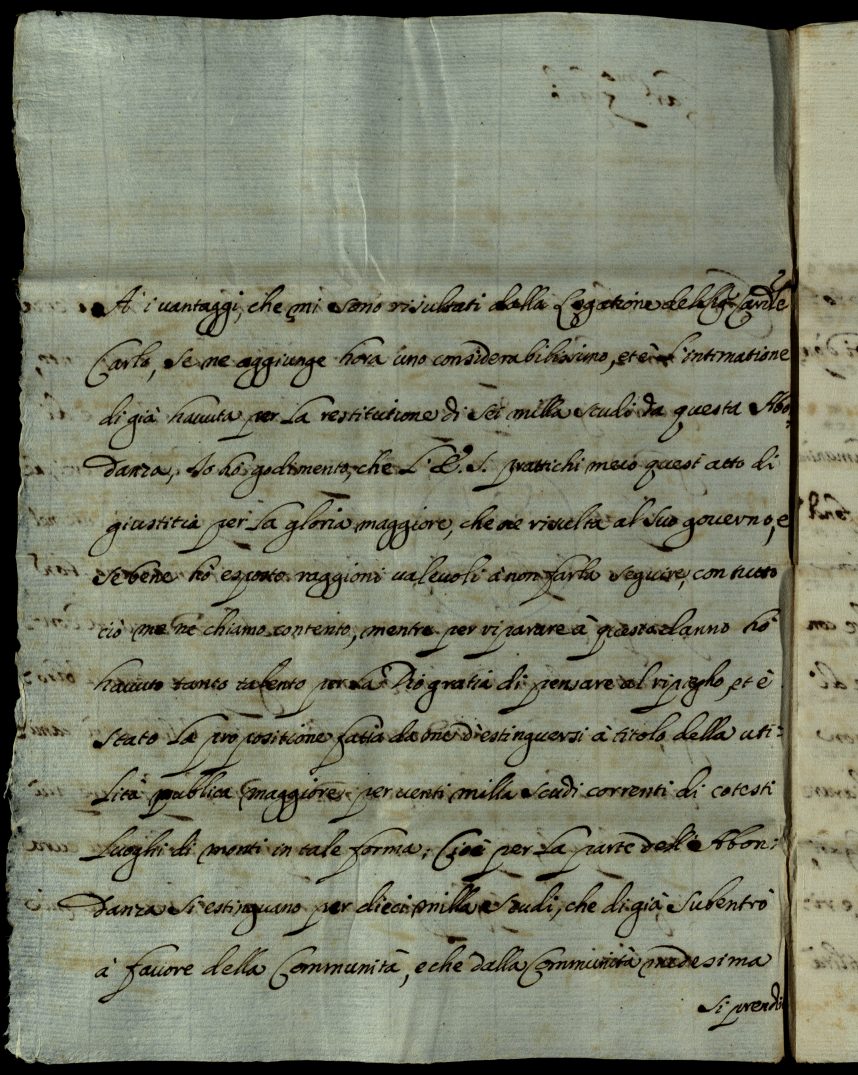 A' i vantaggi, che mi sono risultati dalla Legatione del Sig.r Card.le
Carlo, se ne aggiunge hora uno considerabilissimo, et è l'intimatione
di già havuta per la restitutione di sei milla scudi da questa Abon:
danza, Io hò godimento, che L'E.S. prattichi meco quest'atto di
giustitia per la gloria maggiore, che ne risulta al suo governo, e
sebene hò esposto raggioni valevoli à non farla seguire, con tutto
ciò me ne chiamo contento, mentre per riparare à questo danno hò
havuto tanto talento per la Dio gratia di pensare al ripiegho, et è
stato la propositione fatta da me d'estinguersi à titolo della uti:
lità publica maggiore per venti milla scudi correnti di cotesti
Luoghi di monti in tale forma; Cioè per la parte dell'Abon:
danza si estinguano per dieci milla scudi, che di già subentrò
à favore della Communità, e che dalla Communità medesima
si prendi